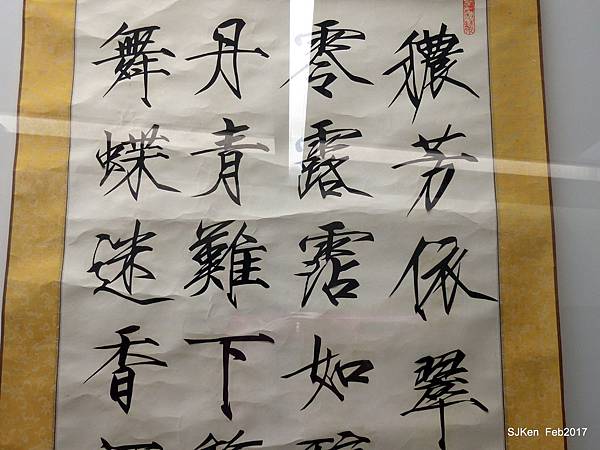 穠芳依翠
零露霑如
丹青難下
舞蝶迷香
SJKen Feb2017